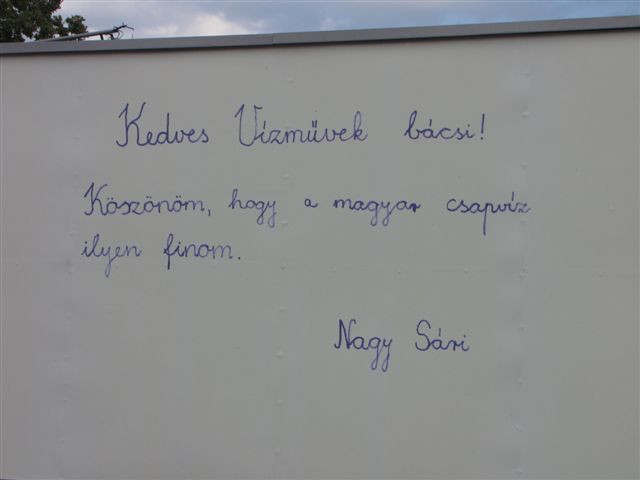 Kedves Vízművek bácsi!
Köszönöm, hogy a magyar csapvíz
ilyen finom.
Nagy Sári